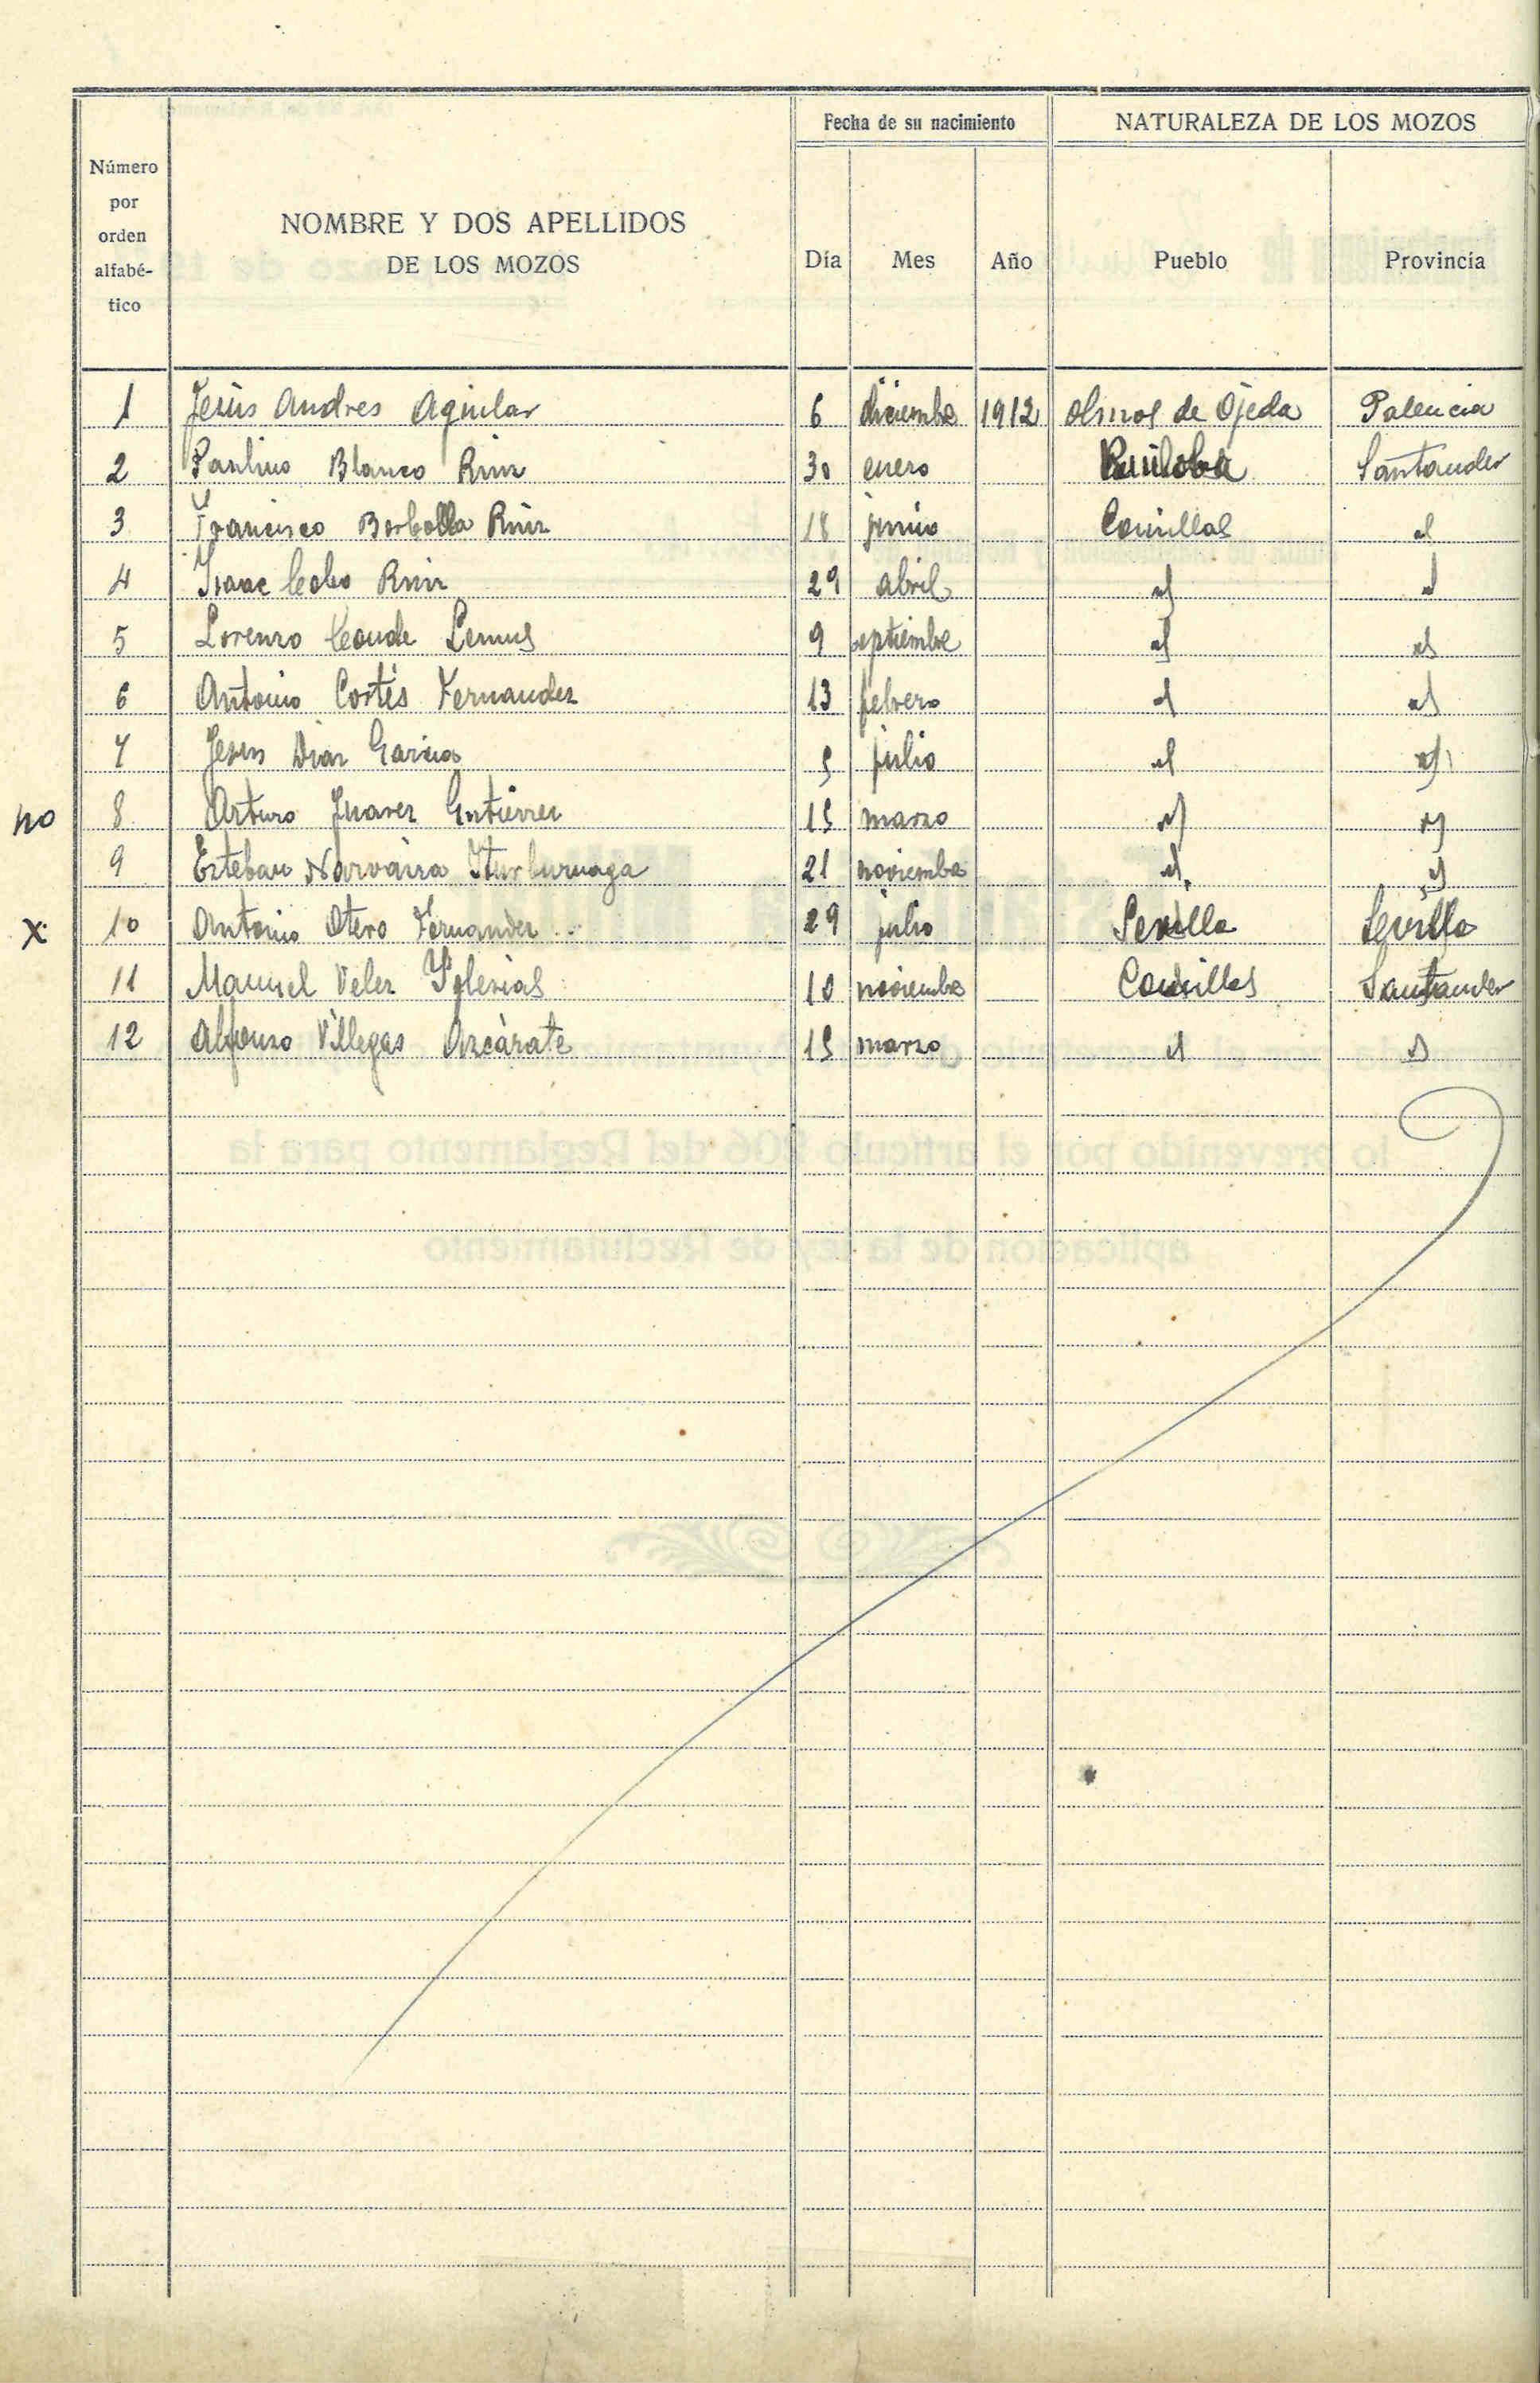 Fecha de su nacimiento NATURALEZA DE LOS MOZOS
Número por orden alfabé-tico NOMBRE Y DOS APELLIDOS DE LOS MOZOS Día Mes Año Pueblo Provincia
1 Jesús Andres Aguilar 6 diciembre 1912 Olmos de Ojeda Palencia
2 Paulino Blanco Ruiz 30 enero Ruiloba Santander
3 Francisco Borbolla Ruiz 18 junio Comillas id
4 Isaac Cobo Ruiz 29 abril id id
5 Lorenzo Conde Lemus 9 septiembre id id
6 Antonio Cortés Fernandez 13 febrero id id
7 Jesus Diaz Garcia 5 julio id id
no 8 Arturo Juarez Gutierrez 15 marzo id id
9 Esteban Narvaiza Iturburuaga 21 noviembre id id
X 10 Antonio Otero Fernandez 29 julio Sevilla Sevilla
11 Manuel Velez Yglesias 10 noviembre Comillas Santander
12 Alfonso Villegas Azcárate 15 marzo id id
lo prevenido por el artículo 206 del Reglamento para la
aplicación de la ley de Reclutamiento